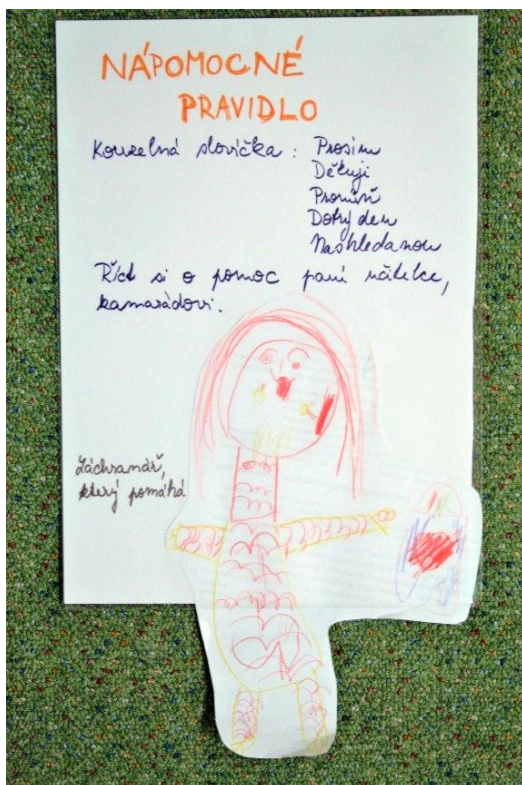 NÁPOMOCNÉ
PRAVIDLO
Kouzelná slovíčka : Prosím
Děkuji
Promiň
Dobrý den
Nashledanou
Říct si o pomoc paní učitelce,
kamarádovi.
Záchranář,
který pomáhá